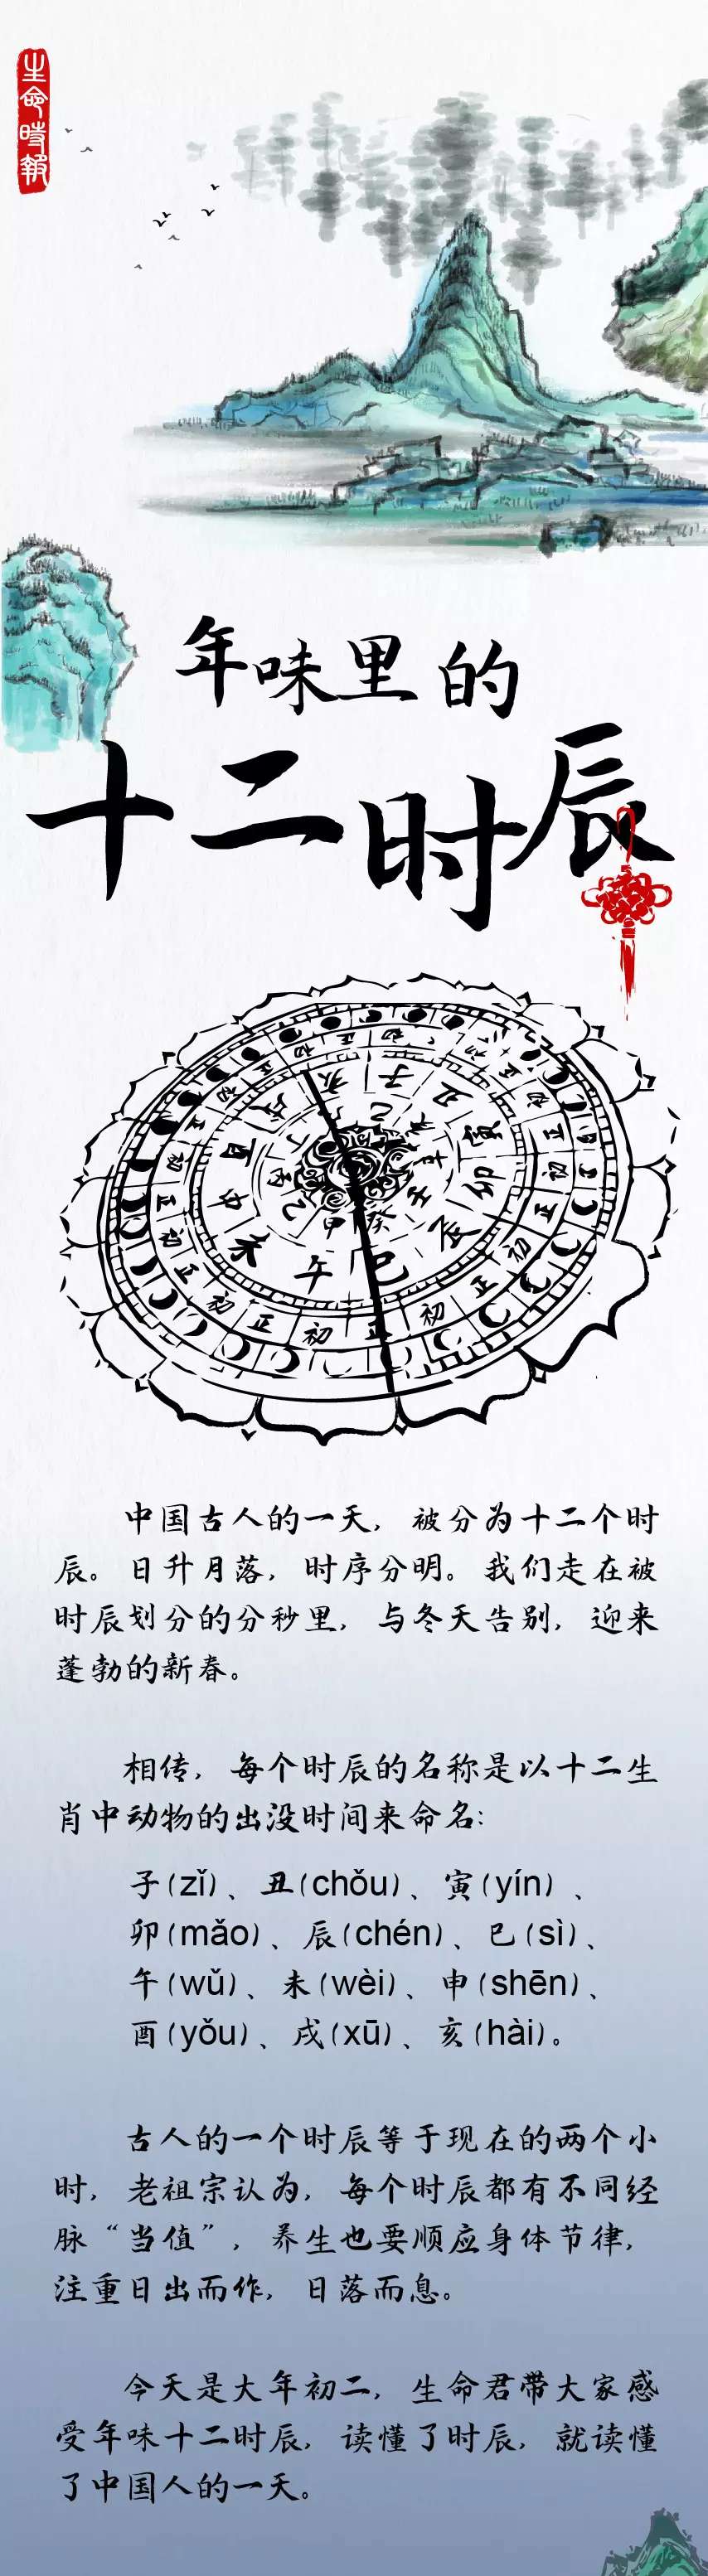 生命時報
年味里的
十二时辰
中国古人的一天，被分为十二个时
辰。日升月落，时序分明。我们走在被
时辰划分的分秒里，与冬天告别，迎来
蓬勃的新春。
相传，每个时辰的名称是以十二生
肖中动物的出没时间来命名：
子(zǐ)、丑(chǒu)、寅(yín)、
卯(mǎo)、辰(chén)、巳(sì)、
午(wǔ)、未(wèi)、申(shēn)、
酉(yǒu)、戌(xū)、亥(hài)。
古人的一个时辰等于现在的两个小
时，老祖宗认为，每个时辰都有不同经
脉“当值”，养生也要顺应身体节律，
注重日出而作，日落而息。
今天是大年初二，生命君带大家感
受年味十二时辰，读懂了时辰，就读懂
了中国人的一天。